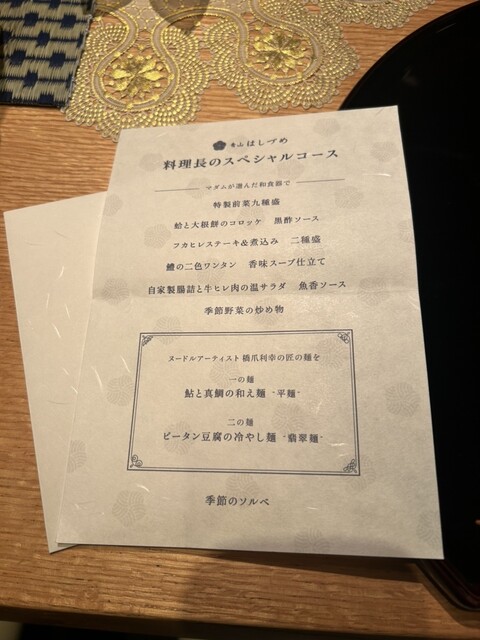 青山 はしづめ
料理長のスペシャルコース
マダムが選んだ和食器で
特製前菜九種盛
蛤と大根餅のコロッケ 黒酢ソース
フカヒレステーキ&煮込み 二種盛
鱧の二色ワンタン 香味スープ仕立て
自家製腸詰と牛ヒレ肉の温サラダ 魚香ソース
季節野菜の炒め物
ヌードルアーティスト 橋爪利幸の匠の麺を
一の麺
鮎と真鯛の和え麺 -平麺-
二の麺
ピータン豆腐の冷やし麺 -翡翠麺-
季節のソルベ